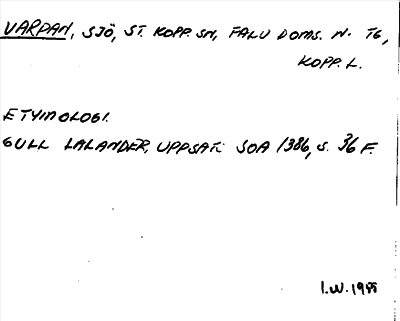 VARPAN, SJÖ, ST. KOPP. SN, FALU DOMS. N. TG,
KOPP. L.
ETYMOLOGI.
GULL LALANDER, UPPSATS SOA 1386, S. 36 F.
I.W. 1988